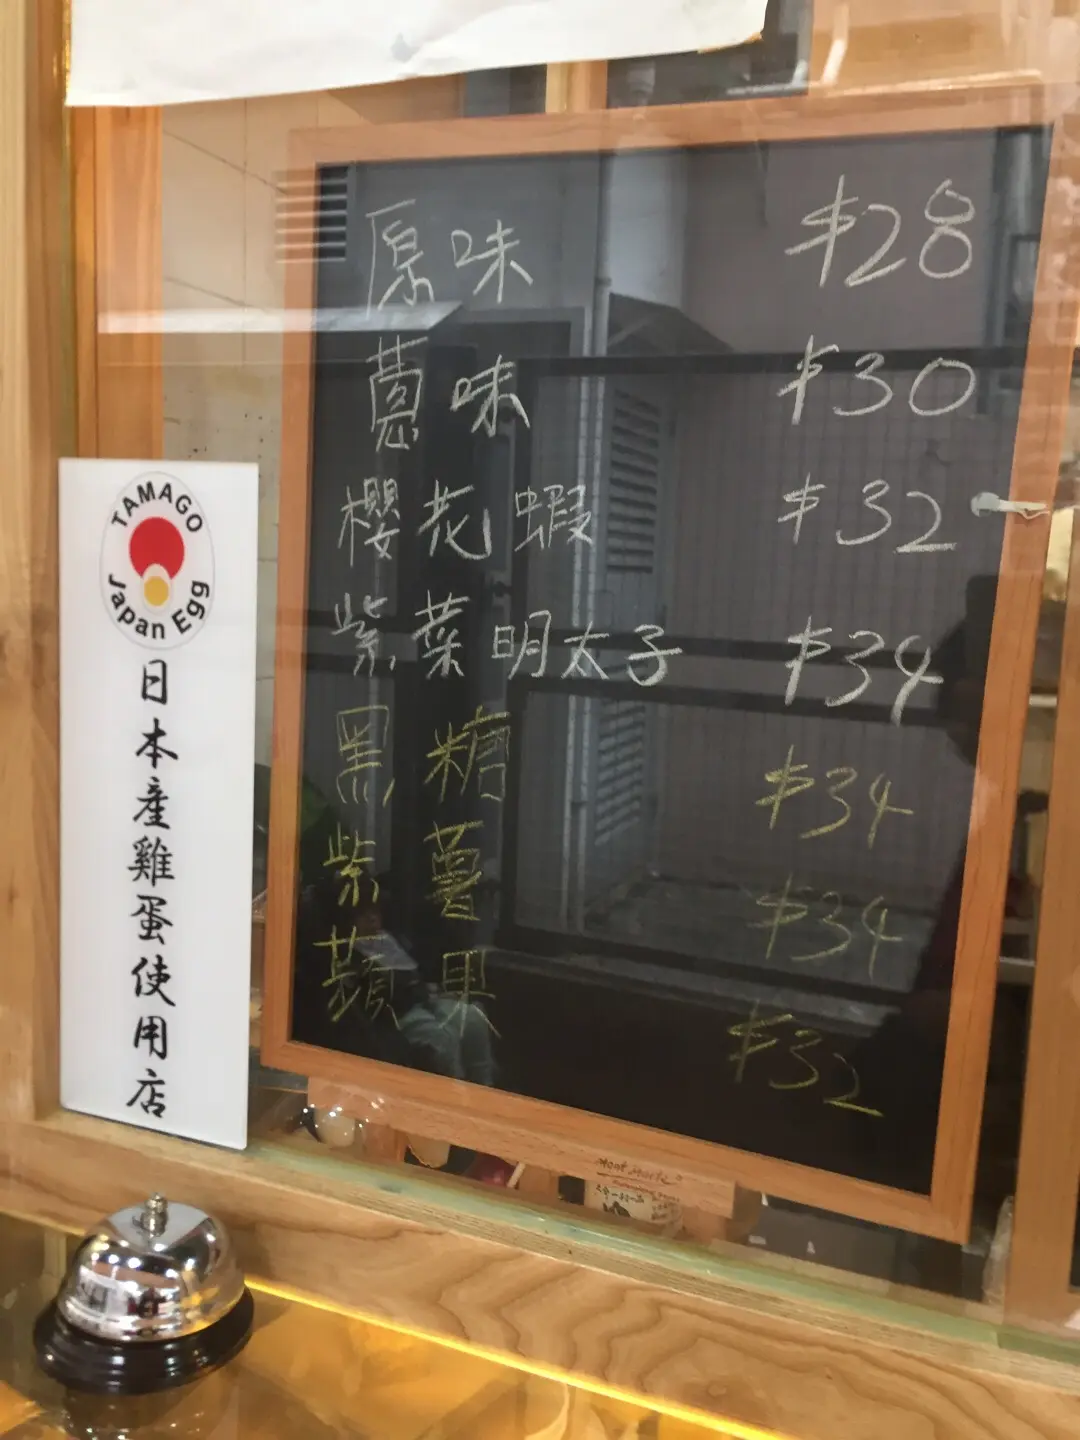 原味 $28
蔥味 $30
櫻花蝦 $32
紫菜明太子 $34
黑糖 $34
紫薯 $34
蘋果 $32
TAMAGO
Japan Egg
日本産雞蛋使用店